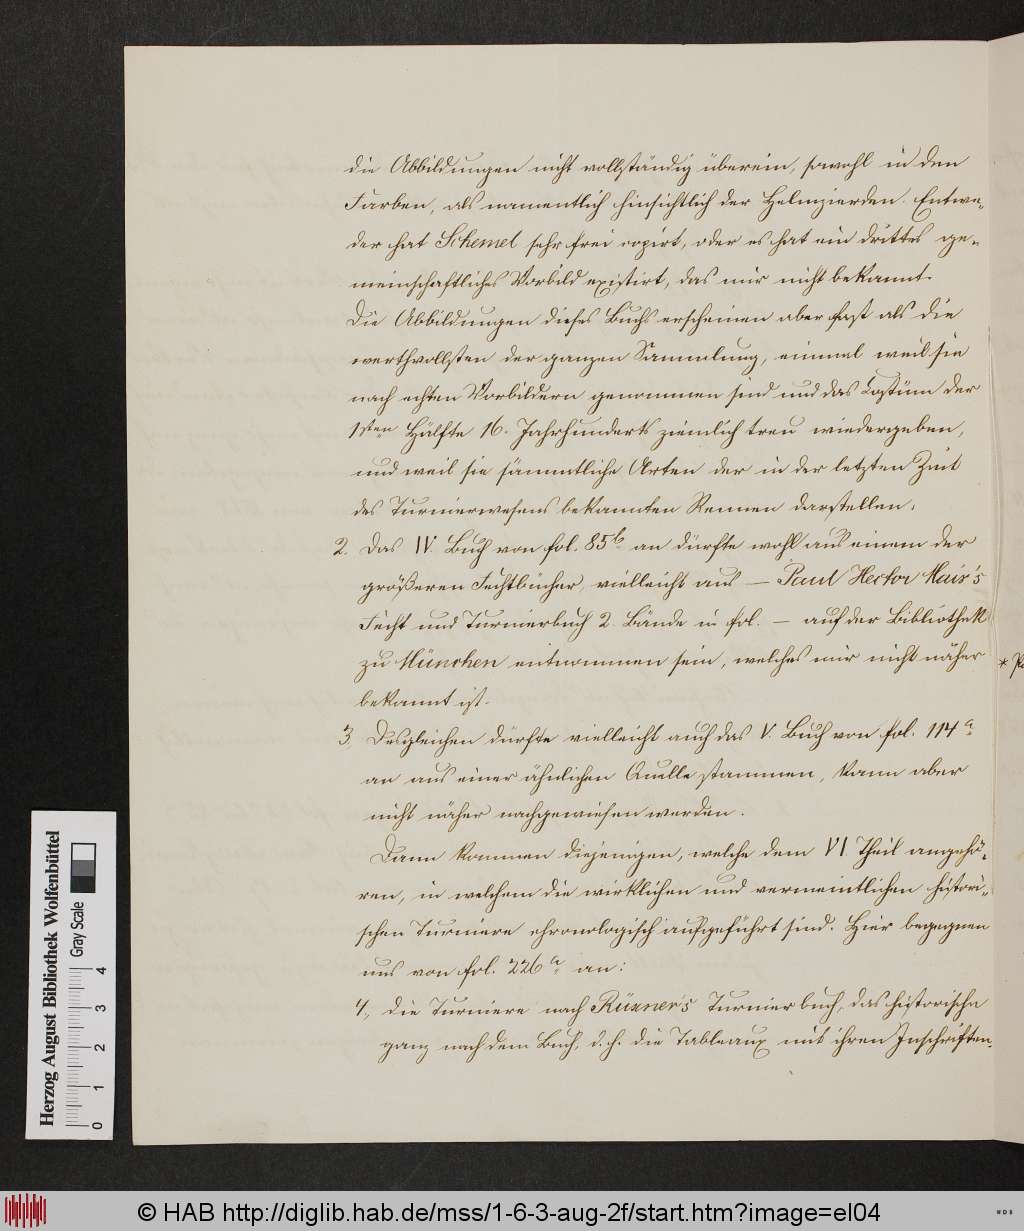 die Abbildungen nicht vollständig überein, sowohl in den
Farben, als namentlich hinsichtlich der Helmzierden. Entwe-
der hat Schemel sehr frei copirt, oder es hat ein drittes ge-
meinschaftliches Vorbild existirt, das mir nicht bekannt.
Die Abbildungen dieses Buchs erscheinen aber fast als die
werthvollsten der ganzen Sammlung, einmal weil sie
nach echten Vorbildern genommen sind und das Costüm der
1sten Hälfte 16. Jahrhunderts ziemlich treu wiedergeben,
und weil sie sämmtliche Arten der in der letzten Zeit
des Turnierwesens bekannten Rennen darstellen.
2. Das IV. Buch von fol. 85b an dürfte wohl aus einem der
größeren Fechtbücher, vielleicht aus — Paul Hector Mair's
Fecht und Turnierbuch 2. Bände in fol. — auf der Bibliothek
zu München entnommen sein, welches mir nicht näher
bekannt ist.
3. Desgleichen dürfte vielleicht auch das V. Buch von fol. 114a
an aus einer ähnlichen Quelle stammen, kann aber
nicht näher nachgewiesen werden.
Dann kommen diejenigen, welche dem VI Theil angehö-
ren, in welchem die wirklichen und vermeintlichen histori-
schen Turniere chronologisch aufgeführt sind. Hier begegnen
uns von fol. 226a an:
4, die Turniere nach Rüxner's Turnierbuch, das historische
ganz nach dem Buch, d. h. die Tableaux mit ihren Inschriften.
Herzog August Bibliothek Wolfenbüttel
Gray Scale
0 1 2 3 4
© HAB http://diglib.hab.de/mss/1-6-3-aug-2f/start.htm?image=el04
WDB